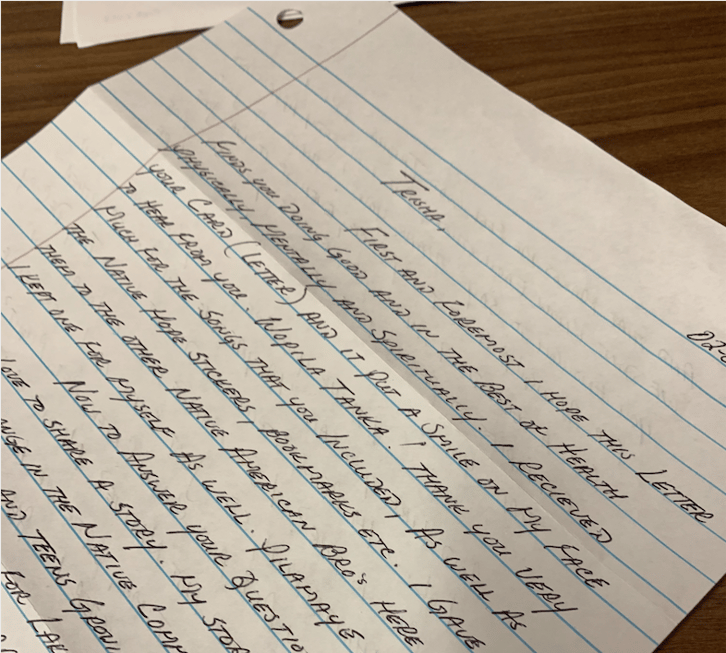 TRISHA,
FIRST AND FOREMOST I HOPE THIS LETTER
FINDS YOU DOING GOOD AND IN THE BEST OF HEALTH
PHYSICALLY, MENTALLY AND SPIRITUALLY. I RECIEVED
YOUR CARD (LETTER) AND IT PUT A SMILE ON MY FACE
TO HEAR FROM YOU. WOPILA TANKA! I THANK YOU VERY
MUCH FOR THE SONGS THAT YOU INCLUDED, AS WELL AS
THE NATIVE HOPE STICKERS, BOOKMARKS ETC. I GAVE
THEM TO THE OTHER NATIVE AMERICAN BRO'S HERE
I KEPT ONE FOR MYSELF AS WELL. PILAMAYE
NOW TO ANSWER YOUR QUESTIO
LOVE TO SHARE A STORY. MY STO
NGE IN THE NATIVE COMM
AND TEENS GROW
FOR LAK